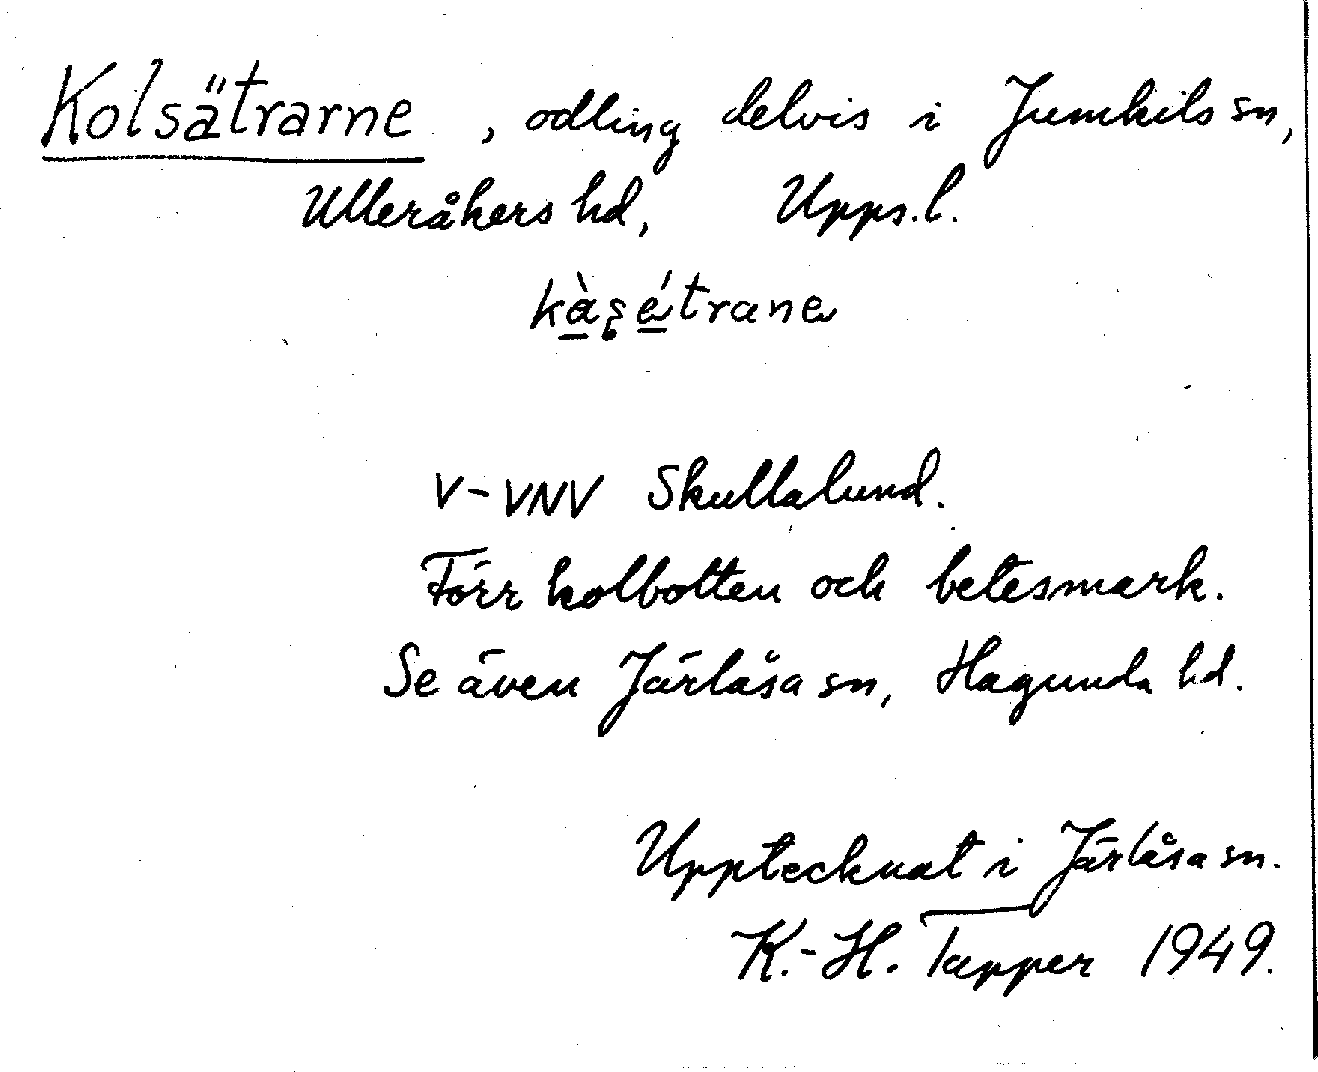 Kolsätrarne, odling delvis i Jumkils sn,
Ulleråkers hd, Upps. l.
kàşétrane
V-VNV Skullalund.
Förr kolbotten och betesmark.
Se även Järlåsa sn, Hagunda hd.
Upptecknat i Järlåsa sn.
K.-H. Tapper 1949.